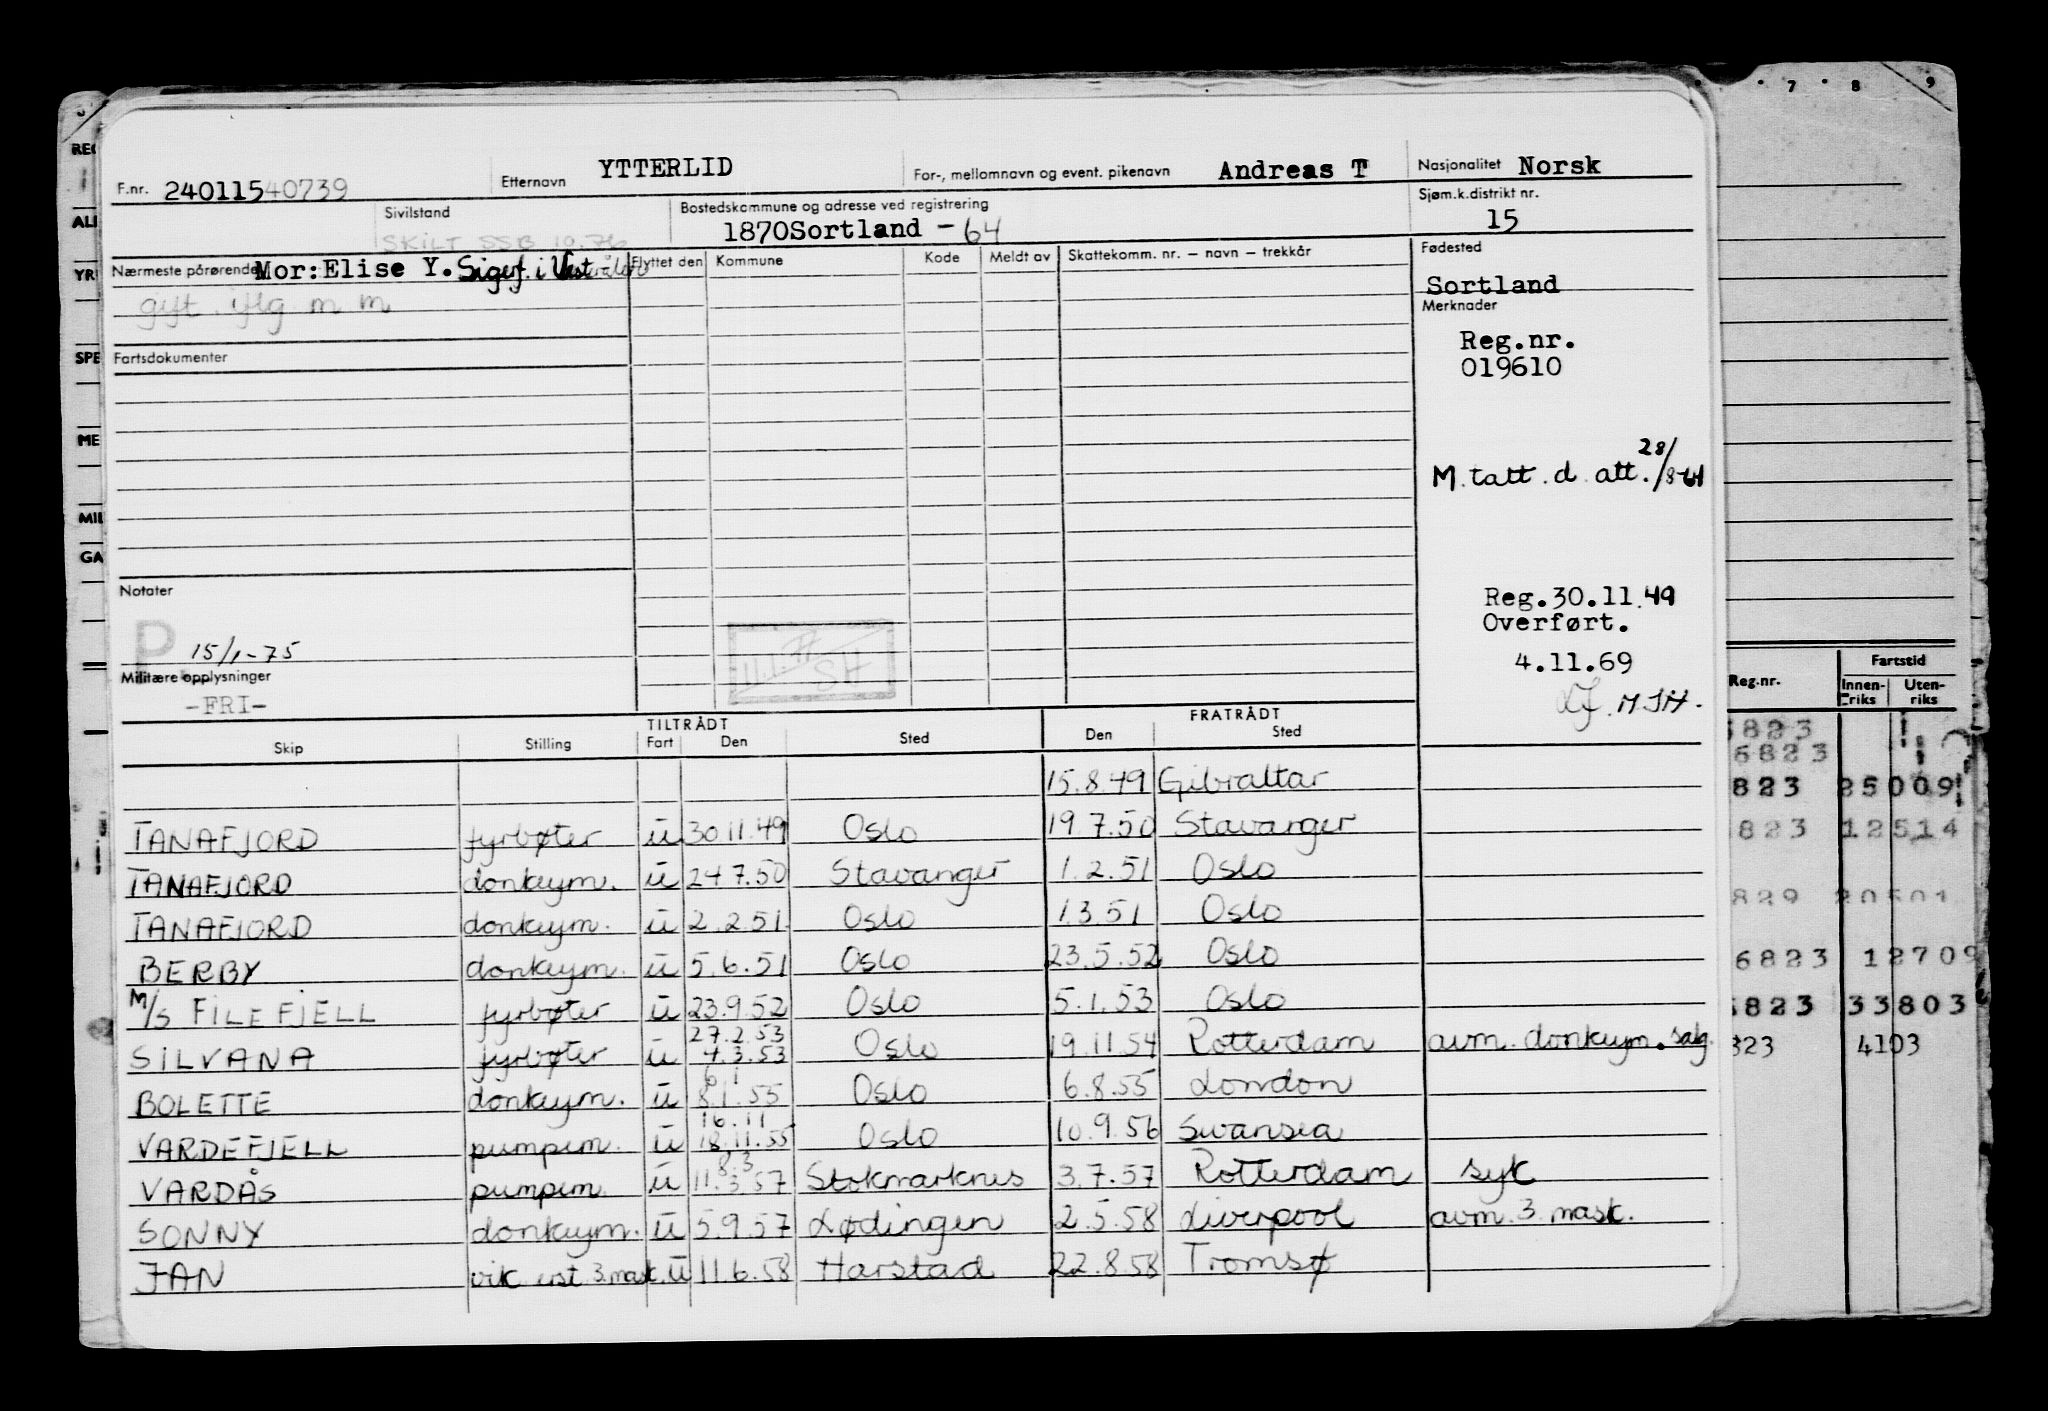 7 8 9
F.nr. 24011540739 Etternavn YTTERLID For-, mellomnavn og event. pikenavn Andreas T Nasjonalitet Norsk
Sivilstand SKILT SSB 10.76 Bostedskommune og adresse ved registrering 1870Sortland - 64 Sjøm.k.distrikt nr. 15
Nærmeste pårørende Mor:Elise Y. i Flyttet den Kommune Kode Meldt av Skattekomm. nr. – navn – trekkår Fødested
gift. iflg m m Sortland
Merknader
Reg.nr.
019610
Fartsdokumenter
M. tatt. d. att. 28/8-64
Notater
Reg.30.11.49
Overført.
P. 15/1-75
4.11.69
Militære opplysninger
-FRI-
SH
TILTRÅDT FRATRÅDT
Skip Stilling Fart Den Sted Den Sted
15.8.49 Gibraltar
TANAFJORD fyrbøter u 30.11.49 Oslo 19.7.50 Stavanger
TANAFJORD donkeym. u 24.7.50 Stavanger 1.2.51 Oslo
TANAFJORD donkeym. u 2.2.51 Oslo 1.3.51 Oslo
BERBY donkeym. u 5.6.51 Oslo 23.5.52 Oslo
M/S FILEFJELL fyrbøter u 23.9.52 Oslo 5.1.53 Oslo
27.2.53
SILVANA fyrbøter u 4.3.53 Oslo 19.11.54 Rotterdam avm. donkeym. salg.
6 1
BOLETTE donkeym. u 8.1.55 Oslo 6.8.55 London
16.11
VARDEFJELL pumpem. u 18.11.55 Oslo 10.9.56 Swansea
8.3
VARDÅS pumpem. u 11.3.57 Stokmarknes 3.7.57 Rotterdam syk
SONNY donkeym. u 5.9.57 Lødingen 2.5.58 Liverpool avm. 3. mask.
JAN vik. 3. mask. u 11.6.58 Harstad 22.8.58 Tromsø
REG
ALI
YR
SPE
ME
MIL
GA
Reg.nr. Fartstid
Innenriks Utenriks
6823
6823
823 25009
823 12514
829 20501
6823 12709
6823 33803
823 4103